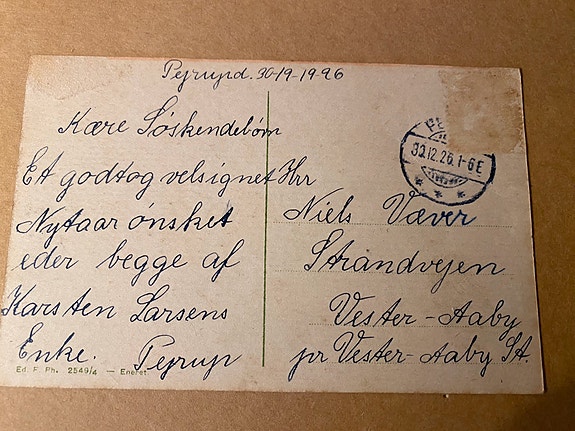 Pejrupd. 30-19-1926
Kære Søskendebørn
Et godt og velsignet
Nytaar ønsket
eder begge af
Karsten Larsens
Enke. Pejrup
Ed. F. Ph. 2549/4 — Eneret.
30.12.26. 1-6 E
Hrr
Niels Væver
Strandvejen
Vester-Aaby
pr Vester-Aaby St.